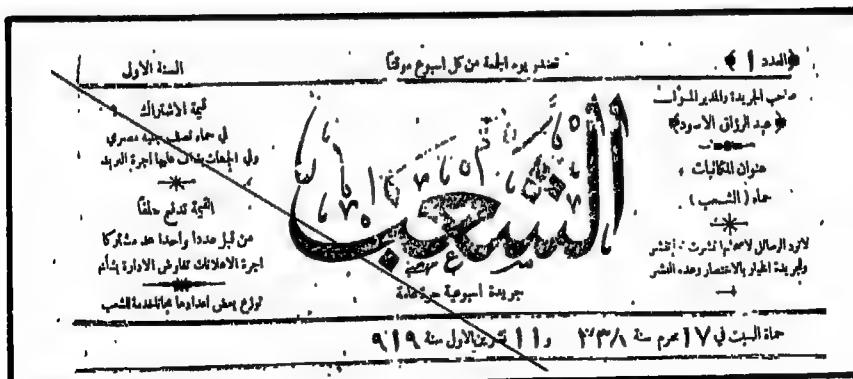 ﴿العدد ١﴾
تصدر يوم الجمعة من كل اسبوع موقتاً
السنة الاولى
صاحب الجريدة والمدير المسؤل
﴿عبد الرزاق الاسود﴾
عنوان المكاتبات
حماه (الشعب)
لاترد الرسائل لاصحابها نشرت او لم تنشر
وللجريدة الخيار بالاختصار وعدم النشر
الشعب
جريدة اسبوعية حرة عامة
قيمة الاشتراك
في حماه نصف جنيه مصري
وفي الجهات يضاف عليها اجرة البريد
القيمة تدفع سلفاً
من قبل عدداً واحداً عد مشتركا
اجرة الاعلانات تفاوض الادارة بشأنها
توزع بعض اعدادها مجاناً خدمة للشعب
حماة السبت في ١٧ محرم سنة ٣٣٨ و ١١ تشرين الاول سنة ٩١٩